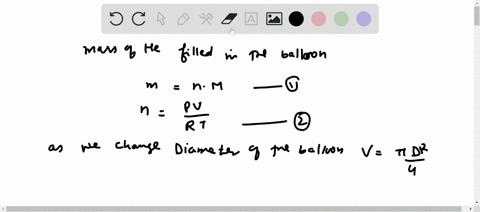 mass of He filled in the balloon
m = n. M —— ①
n = PV/RT —— ②
as we change Diameter of the balloon V = πD²/4